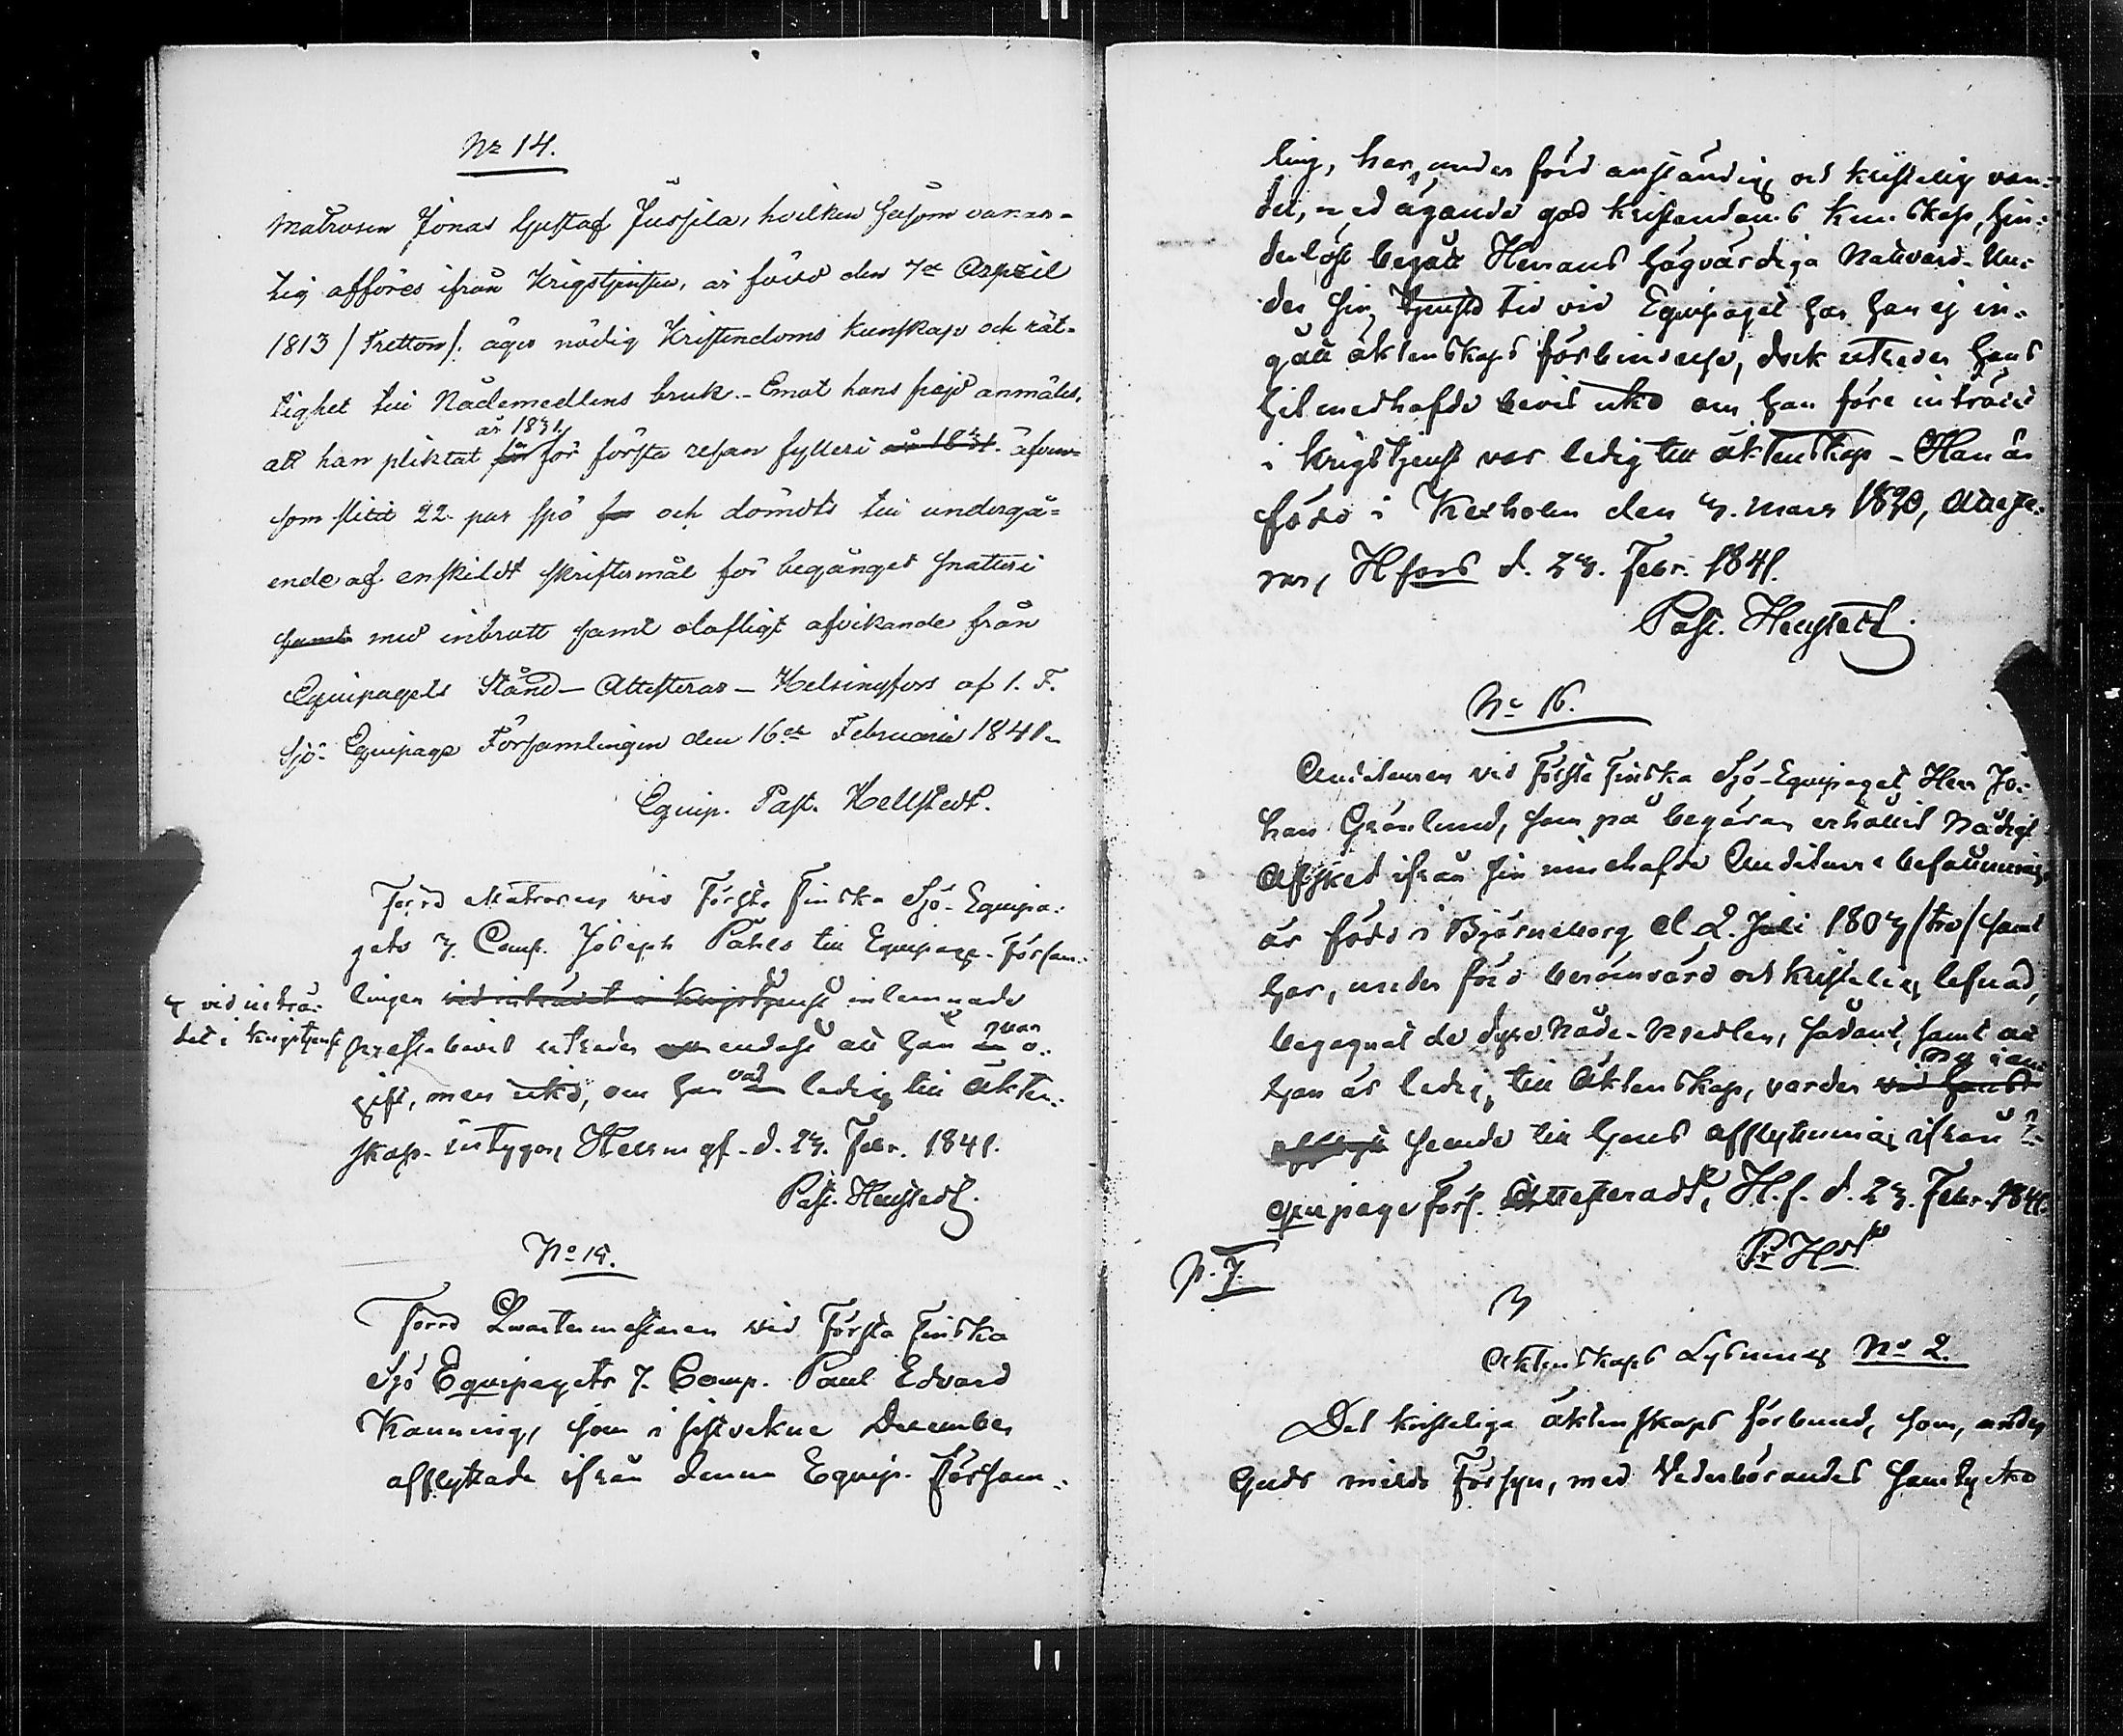 Nr 14.
Matrosen Jonas Gustaf Jussila, hvilken såsom vanar-
tig afföres ifrån Krigstjensten, är född den 7de April
1813 /Tretton/. äger nödig Kristendoms kunskap och rät-
tighet till Nådemedlens bruk. - Emot hans frejd anmäles,
år 1831
att han pliktat för första resan fylleri år 1831. äfven-
som slitit 22 par spö och dömdts till undergå-
ende af enskildt skriftermål för begånget snatteri
samt med inbrott samt olofligt afvikande från
Equipagets Stånd - Attesteras - Helsingfors af 1. F.
Sjö-Equipage Församlingen den 16de Februarii 1841.
Equip. Past. Hellstedt.
Förrd Matrosen vid Första Finska Sjö-Equipa-
gets 3. Comp. Joseph Pahls till Equipage-Försam-
lingen vid inträdet i krigstjenst inlemnade
vid inträ-
det i krigstjenst
prestabevis utreder endast att han var o-
gift, men icke, om han var ledig till äkten-
skap. intygar, Helsingf. d. 23. Febr. 1841.
Past. Hellstedt.
No 15.
Förrd Quartermästaren vid Första Finska
Sjö Equipagets 7. Comp. Paul Edvard
Kanning, som i sistvekne December
afflyttade ifrån denna Equip. Försam-
ling, har, under förd anständig och kristelig van-
del, med ägande god kristendoms kunskap, hin-
derlöst begått Herrans högvärdiga Nattvard. Un-
der sin tjenste tid vid Equipaget har han ej in-
gått äktenskaps förbindelse, dock utreder hans
hit medhafde bevis icke om han före inträdet
i krigstjenst var ledig till äktenskap - Han är
född i Kexholm den 3. Mars 1820, Atteste-
ras, Hfors d. 23. Febr. 1841.
Past. Hellstedt
No 16.
Auditeuren vid Första Finska Sjö-Equipaget Herr Jo-
han Grönlund, som på begäran erhållit Nådigt
Afsked ifrån sin innehafde Auditeurs befattning,
är född i Björneborg d 2. Juli 1803 /tre/ samt
har, under förd berömvärd och kristelig lefnad,
begagnat de dyre Nåde-Medlen, sådant, samt att
han är ledig till äktenskap, varder vid hans
seende till hans afflyttning ifrån E-
quipage förs. Attesteradt, H.f. d. 23. Febr. 1841.
Pr Hdt
N. 7.
3
Äktenskaps Lysning No 2.
Det kristeliga äktenskaps förbund, som, under
Guds milda Försyn, med Vederbörandes samtycke